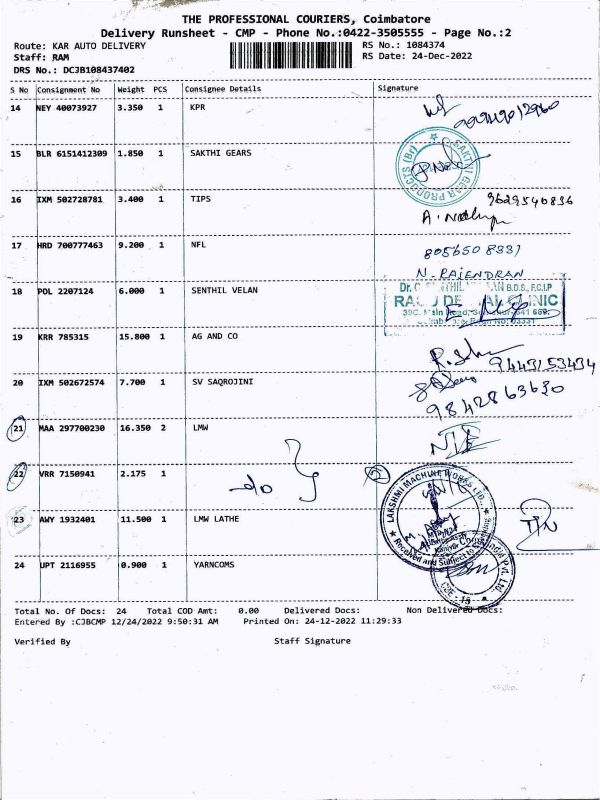 THE PROFESSIONAL COURIERS, Coimbatore
Delivery Runsheet - CMP - Phone No.:0422-3505555 - Page No.:2
Route: KAR AUTO DELIVERY RS No.: 1084374
Staff: RAM RS Date: 24-Dec-2022
DRS No.: DCJB108437402
S No Consignment No Weight PCS Consignee Details Signature
14 NEY 40073927 3.350 1 KPR
15 BLR 6151412309 1.850 1 SAKTHI GEARS
SAKTHI GEAR PRODUCTS (Br)
16 IXM 502728781 3.400 1 TIPS 9629540836
17 HRD 700777463 9.200 1 NFL 8056508331
N. RAJENDRAN
18 POL 2207124 6.000 1 SENTHIL VELAN
B.D.S., F.C.I.P
19 KRR 785315 15.800 1 AG AND CO
9443153434
20 IXM 502672574 7.700 1 SV SAQROJINI
9842863630
21 MAA 297700230 16.350 2 LMW
22 VRR 7150941 2.175 1 -do 2
LAKSHMI MACHINE WORKS LTD.
23 AWY 1932401 11.500 1 LMW LATHE
Received and Subject to Checking
24 UPT 2116955 0.900 1 YARNCOMS
India Pvt. Ltd.
CBE - 18
Total No. Of Docs: 24 Total COD Amt: 0.00 Delivered Docs: Non Delivered Docs:
Entered By :CJBCMP 12/24/2022 9:50:31 AM Printed On: 24-12-2022 11:29:33
Verified By Staff Signature